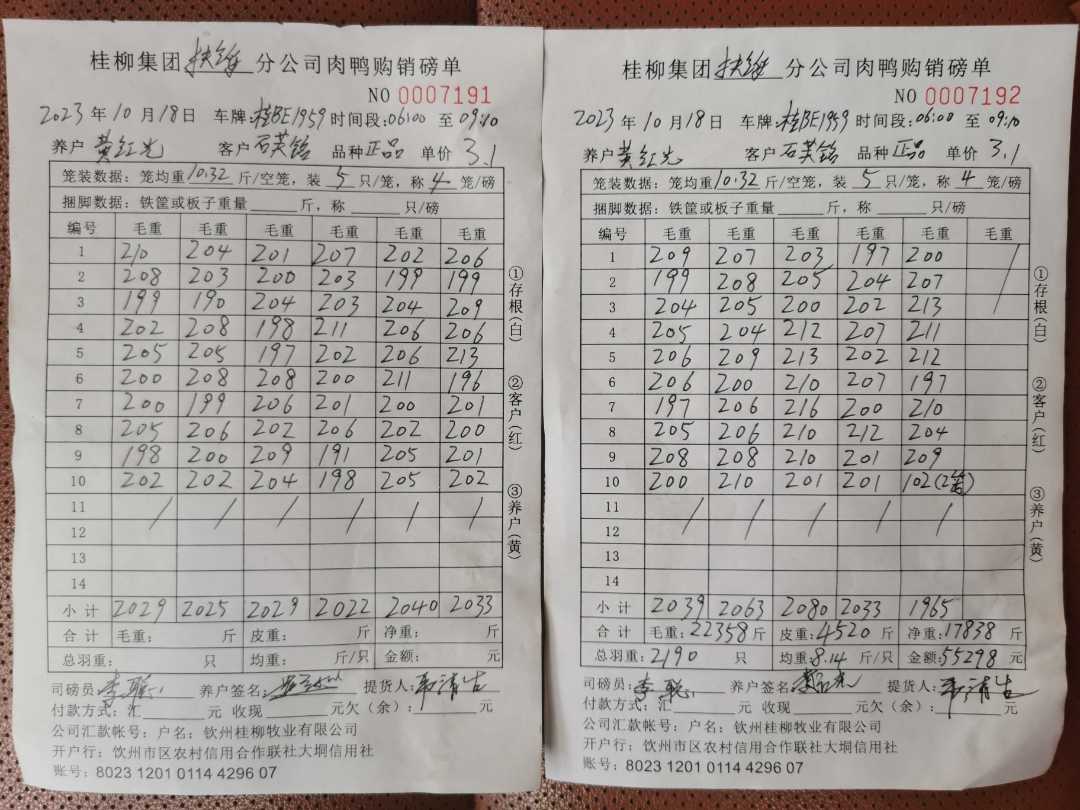 桂柳集团扶绥分公司肉鸭购销磅单
NO 0007191
2023年10月18日 车牌:桂BE1959 时间段:06:00至09:10
养户 黄红光 客户 石英铭 品种 正品 单价 3.1
笼装数据：笼均重10.32斤/空笼，装5只/笼，称4笼/磅
捆脚数据：铁筐或板子重量____斤，称____只/磅
编号 毛重 毛重 毛重 毛重 毛重 毛重
1 210 204 201 207 202 206
2 208 203 200 203 199 199
3 199 190 204 203 204 209
4 202 208 198 211 206 206
5 205 205 197 202 206 213
6 200 208 208 200 211 196
7 200 199 206 201 200 201
8 205 206 202 206 202 200
9 198 200 209 191 205 201
10 202 202 204 198 205 202
11 / / / / / /
12
13
14
小计 2029 2025 2029 2022 2040 2033
合计 毛重： 斤 皮重： 斤 净重： 斤
总羽重： 只 均重： 斤/只 金额： 元
司磅员：李聪 养户签名： 提货人：
付款方式：汇____元 收现____元欠（余）：____元
公司汇款帐号：户名：钦州桂柳牧业有限公司
开户行：钦州市区农村信用合作联社大垌信用社
账号：8023 1201 0114 4296 07
①存根（白）
②客户（红）
③养户（黄）
桂柳集团扶绥分公司肉鸭购销磅单
NO 0007192
2023年10月18日 车牌:桂BE1959 时间段:06:00至09:10
养户 黄红光 客户 石英铭 品种 正品 单价 3.1
笼装数据：笼均重10.32斤/空笼，装5只/笼，称4笼/磅
捆脚数据：铁筐或板子重量____斤，称____只/磅
编号 毛重 毛重 毛重 毛重 毛重 毛重
1 209 207 203 197 200 /
2 199 208 205 204 207
3 204 205 200 202 213
4 205 204 212 207 211
5 206 209 213 202 212
6 206 200 210 207 197
7 197 206 216 200 210
8 205 206 210 212 204
9 208 208 210 201 209
10 200 210 201 201 102(2笼)
11 / / / / /
12
13
14
小计 2039 2063 2080 2033 1965
合计 毛重：22358斤 皮重：4520斤 净重：17838斤
总羽重：2190 只 均重：8.14斤/只 金额：55298元
司磅员：李聪 养户签名： 提货人：
付款方式：汇____元 收现____元欠（余）：____元
公司汇款帐号：户名：钦州桂柳牧业有限公司
开户行：钦州市区农村信用合作联社大垌信用社
账号：8023 1201 0114 4296 07
①存根（白）
②客户（红）
③养户（黄）